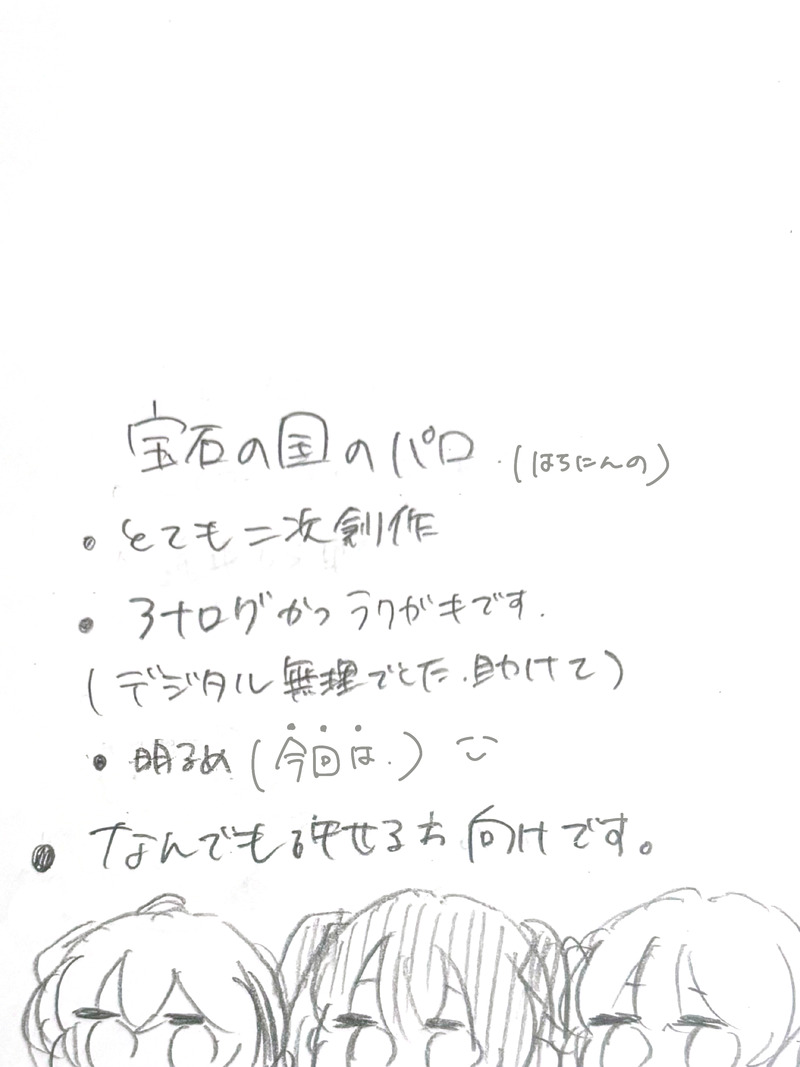 宝石の国のパロ (ほろにんの)
・とても二次創作
・アナログかつラクガキです.
(デジタル無理でした.助けて)
・明るめ(今回は.)
・なんでも許せる方向けです。